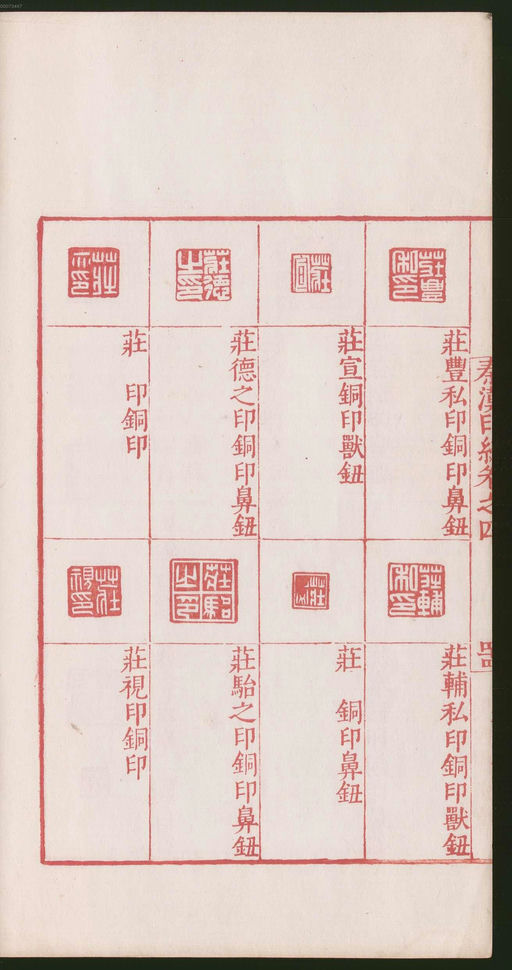 00073447
秦漢印統卷之四
莊豐私印銅印鼻鈕
莊宣銅印獸鈕
莊德之印銅印鼻鈕
莊 印銅印
莊輔私印銅印獸鈕
莊 銅印鼻鈕
莊駘之印銅印鼻鈕
莊視印銅印